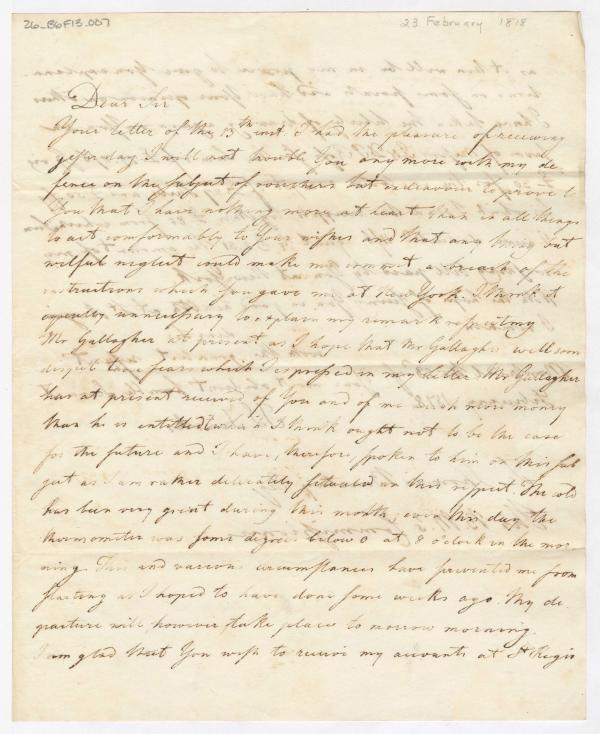 26_B6F13_007
23 February 1818
Dear Sir
Your letter of the 13th inst. I had the pleasure of receiving
yesterday. I will not trouble You any more with my de
fence on the subject of vouchers but endeavour to prove to
You that I have nothing more at heart than in all things
to act comformably to Your wishes and that any but
wilful neglect could make me commit a breach of the
instructions which You gave me at New York. I think it
equally unnecessary to explain my remark respecting
Mr Gallagher at present as I hope that Mr Gallagher will soon
dispel those fears which I expressed in my letter. Mr Gallagher
has at present received of You and of me much more money
than he is entitled to which I think ought not to be the case
for the future and I have, therefore, spoken to him on this sub
ject as I am rather delicately situated in this respect. The cold
has been very great during this month; even this day the
thermometer was some degrees below 0 at 8 o'clock in the mor
ning. This and various circumstances have prevented me from
starting as I hoped to have done some weeks ago. My de
parture will, however, take place to morrow morning.
I am glad that You wish to receive my accounts at St Regis